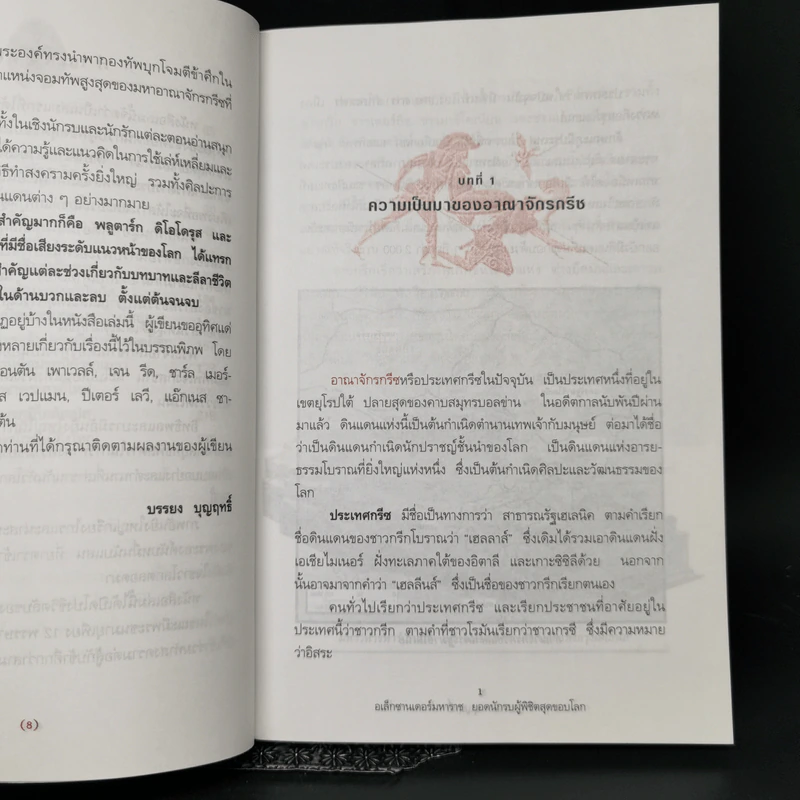 พระองค์ทรงนำพากองทัพบุกโจมตีข้าศึกใน
แหน่งจอมทัพสูงสุดของมหาอาณาจักรกรีซที่
ทั้งในเชิงนักรบและนักรักแต่ละตอนอ่านสนุก
ได้ความรู้และแนวคิดในการใช้เล่ห์เหลี่ยมและ
ธีทำสงครามครั้งยิ่งใหญ่ รวมทั้งศิลปะการ
นแดนต่าง ๆ อย่างมากมาย
สำคัญมากก็คือ พลูตาร์ก ดิโอโดรุส และ
ที่มีชื่อเสียงระดับแนวหน้าของโลก ได้แทรก
สำคัญแต่ละช่วงเกี่ยวกับบทบาทและลีลาชีวิต
ในด้านบวกและลบ ตั้งแต่ต้นจนจบ
ฏอยู่บ้างในหนังสือเล่มนี้ ผู้เขียนขออุทิศแด่
งหลายเกี่ยวกับเรื่องนี้ไว้ในบรรณพิภพ โดย
อนตัน เพาเวลล์, เจน รีด, ชาร์ล เมอร์-
ส เวปแมน, ปีเตอร์ เลวี, แอ๊กเนส ซา-
ต้น
าท่านที่ได้กรุณาติดตามผลงานของผู้เขียน
บรรยง บุญฤทธิ์
(8)
บทที่ 1
ความเป็นมาของอาณาจักรกรีซ
อาณาจักรกรีซหรือประเทศกรีซในปัจจุบัน เป็นประเทศหนึ่งที่อยู่ใน
เขตยุโรปใต้ ปลายสุดของคาบสมุทรบอลข่าน ในอดีตกาลนับพันปีผ่าน
มาแล้ว ดินแดนแห่งนี้เป็นต้นกำเนิดตำนานเทพเจ้ากับมนุษย์ ต่อมาได้ชื่อ
ว่าเป็นดินแดนกำเนิดนักปราชญ์ชั้นนำของโลก เป็นดินแดนแห่งอารย-
ธรรมโบราณที่ยิ่งใหญ่แห่งหนึ่ง ซึ่งเป็นต้นกำเนิดศิลปะและวัฒนธรรมของ
โลก
ประเทศกรีซ มีชื่อเป็นทางการว่า สาธารณรัฐเฮเลนิค ตามคำเรียก
ชื่อดินแดนของชาวกรีกโบราณว่า “เฮลลาส์” ซึ่งเดิมได้รวมเอาดินแดนฝั่ง
เอเชียไมเนอร์ ฝั่งทะเลภาคใต้ของอิตาลี และเกาะซิซิลีด้วย นอกจาก
นั้นอาจมาจากคำว่า “เฮลลีนส์” ซึ่งเป็นชื่อของชาวกรีกเรียกตนเอง
คนทั่วไปเรียกว่าประเทศกรีซ และเรียกประชาชนที่อาศัยอยู่ใน
ประเทศนี้ว่าชาวกรีก ตามคำที่ชาวโรมันเรียกว่าชาวเกรซี ซึ่งมีความหมาย
ว่าอิสระ
1
อเล็กซานเดอร์มหาราช ยอดนักรบผู้พิชิตสุดขอบโลก